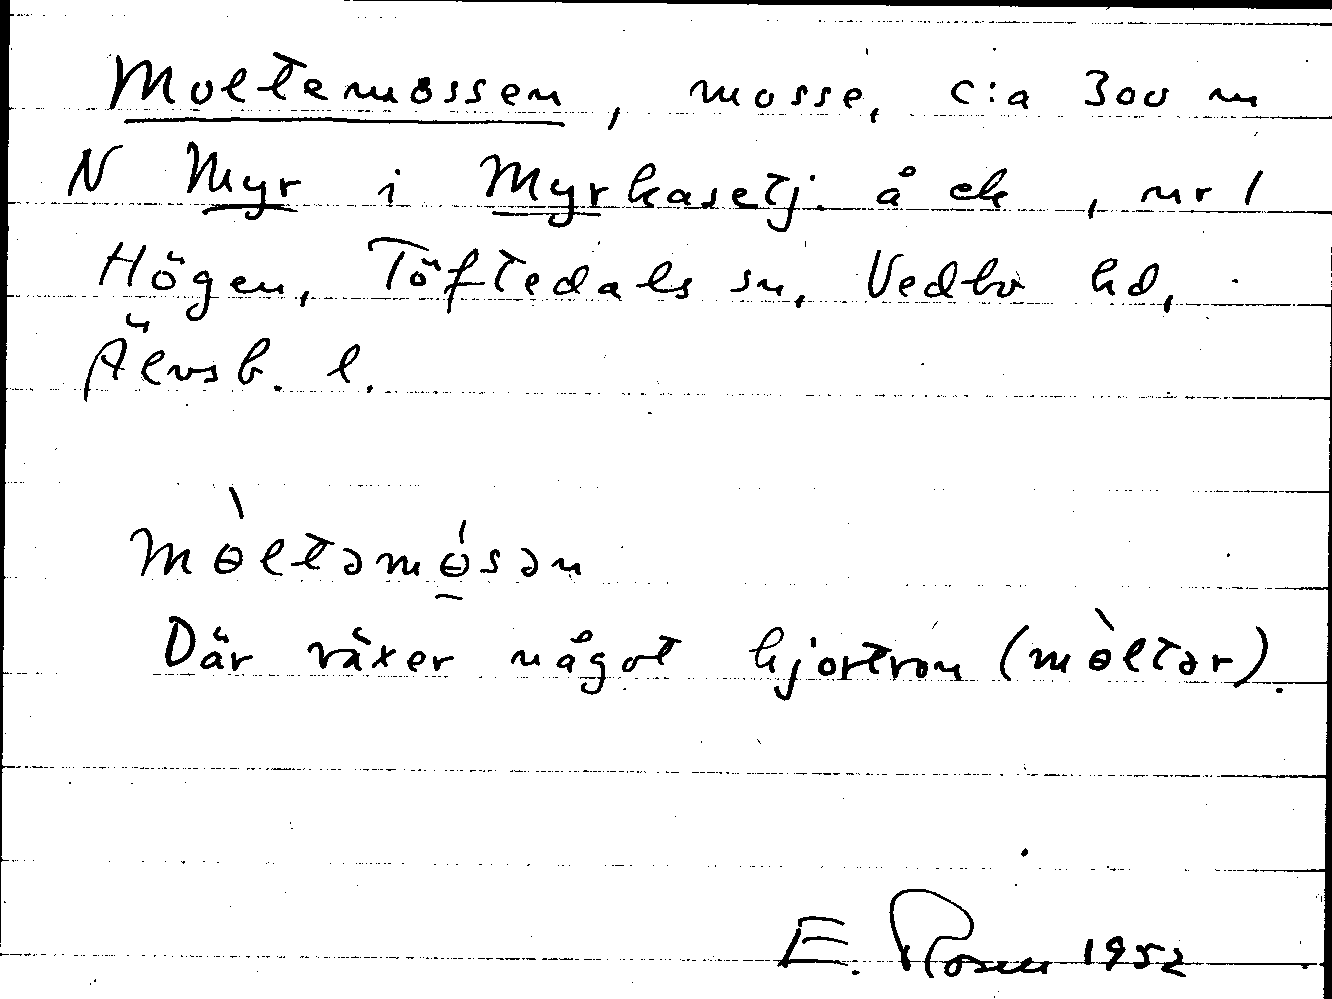 Moltemossen, mosse, c:a 300 m
N Myr i Myrkasetj. å ek, nr 1
Högen, Töftedals sn, Vedbo hd,
Älvsb. l.
mɵ̀ltəmɵ́sən
Där växer något hjortron (mɵ̀ltər).
E. Rosen 1952